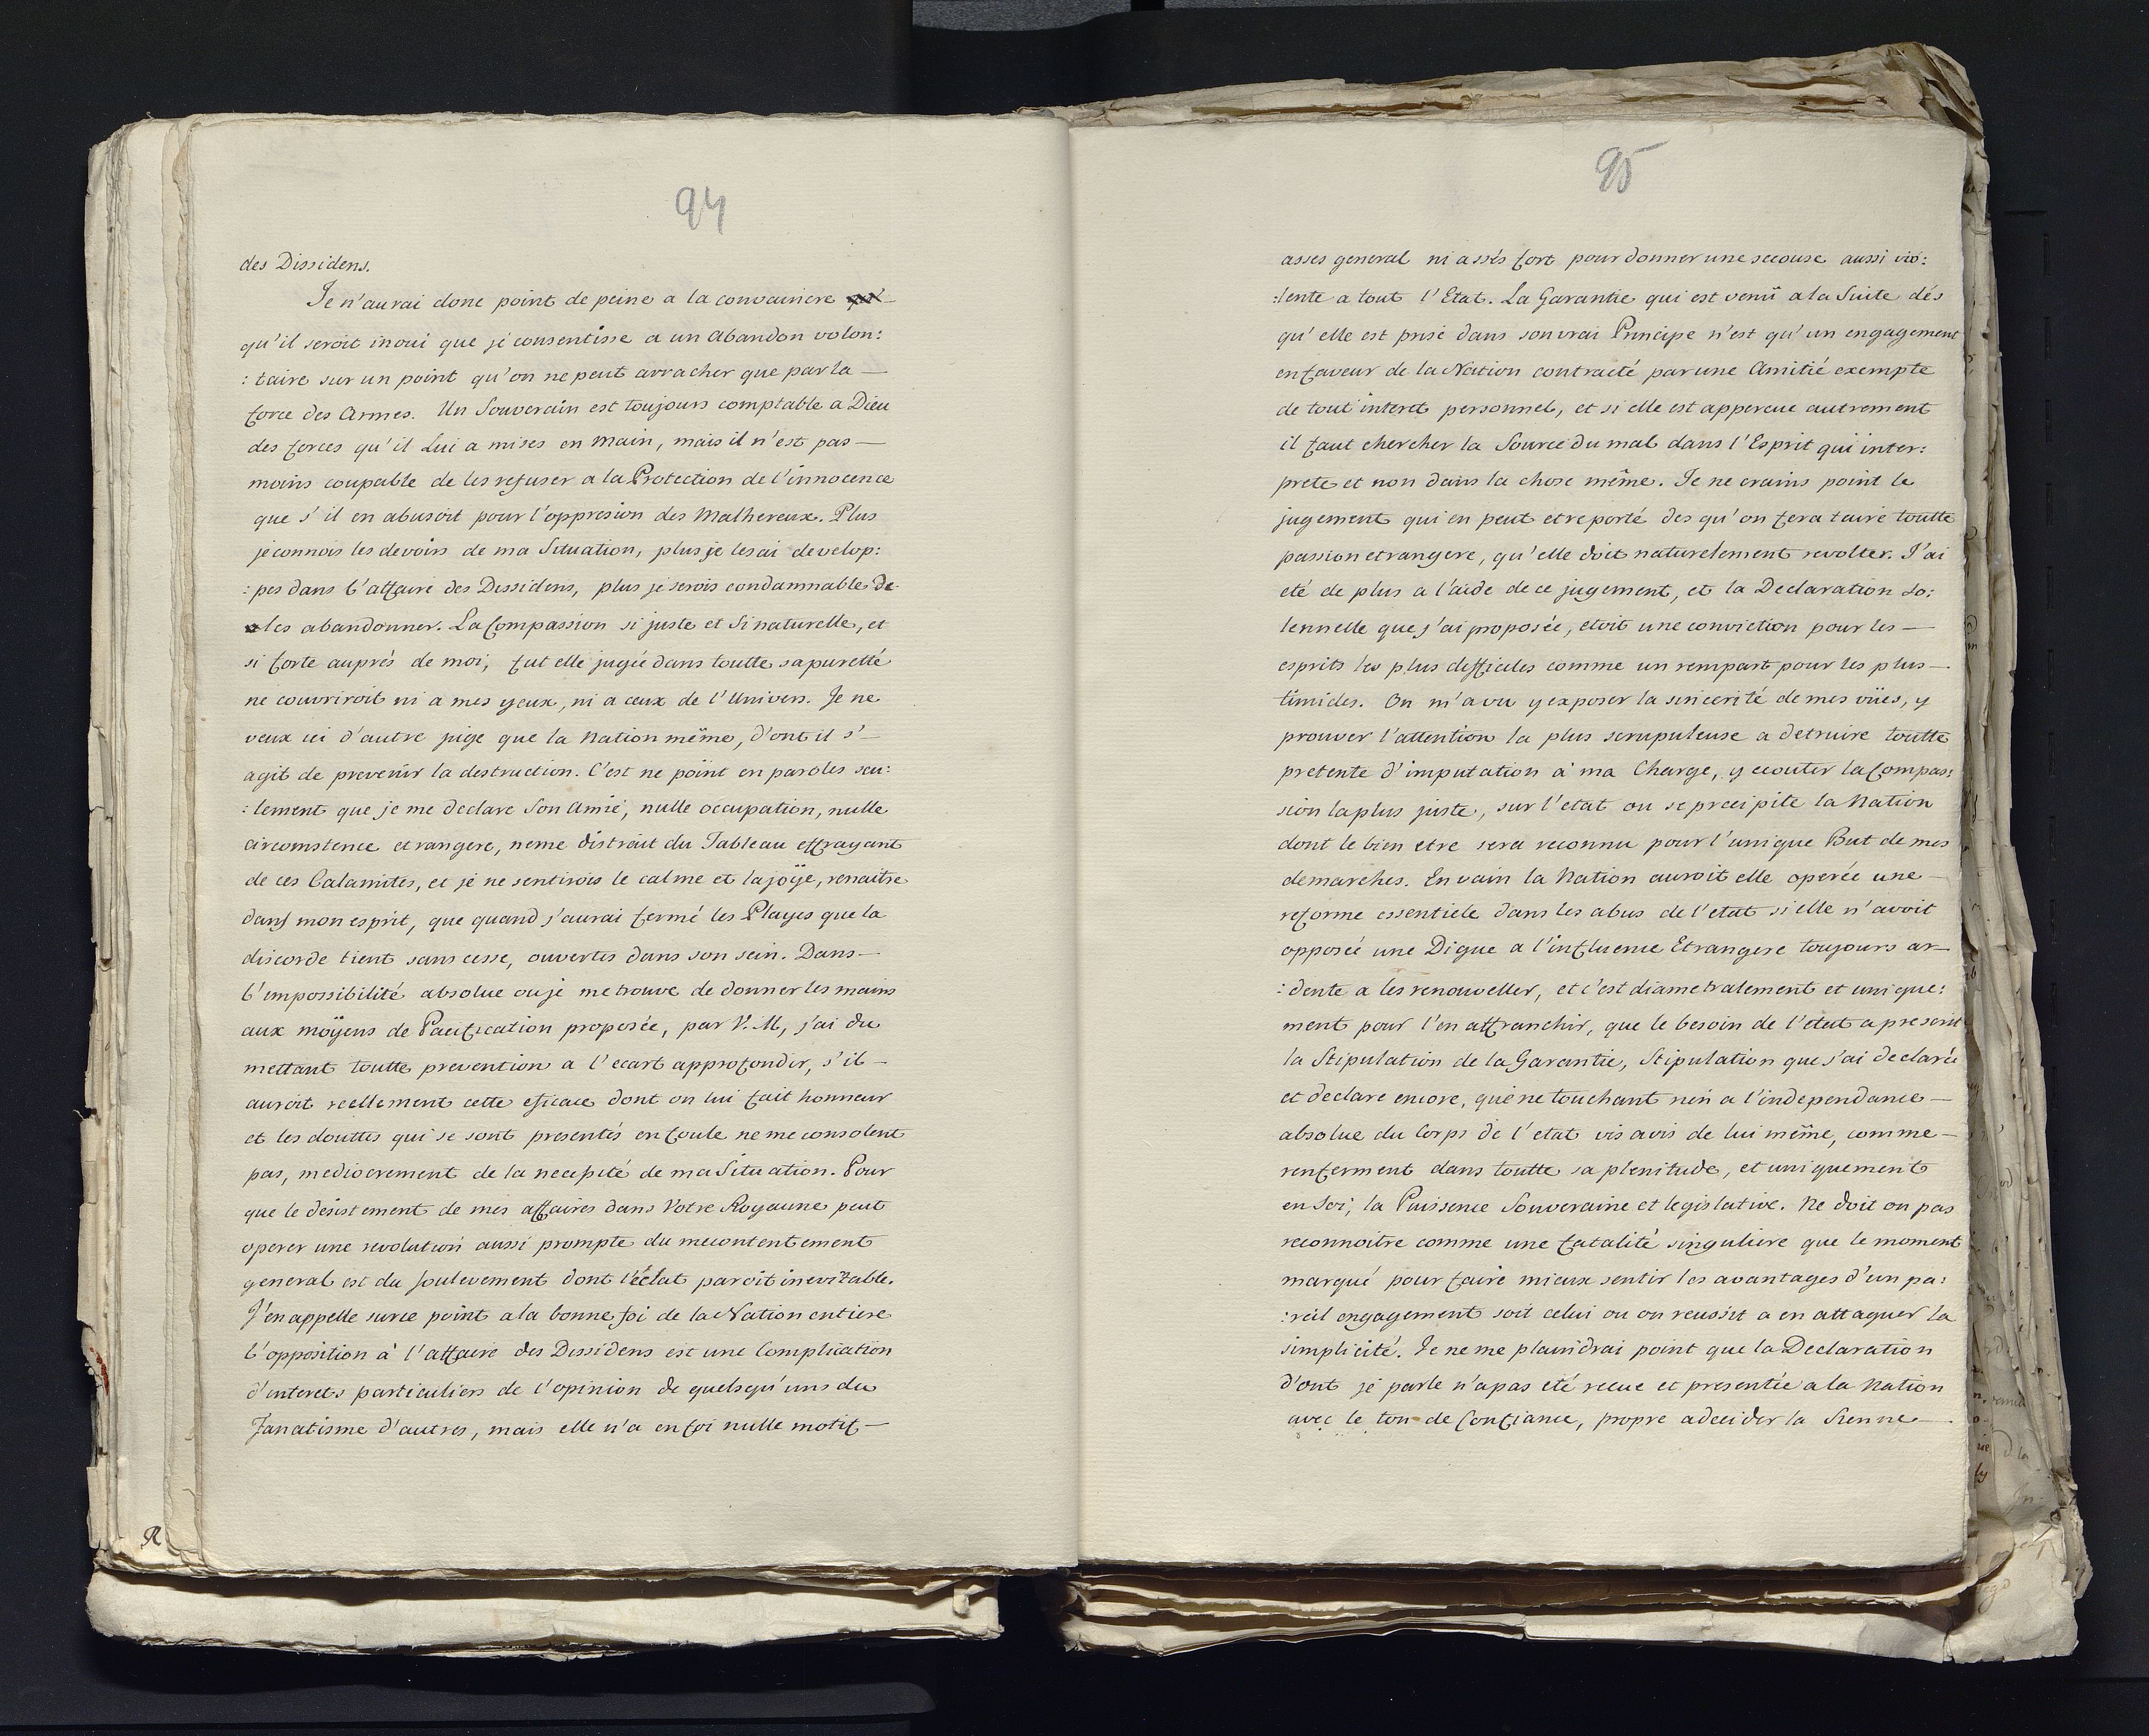 94
des Dissidens.
Je n'aurai donc point de peine a la convainiere
qu'il seroit inoui que je consentisse a un abandon volon:
: taire sur un point qu'on ne peut arracher que par la —
force des Armes. Un Souverain est toujours comptable a Dieu
des forces qu'il Lui a mises en main, mais il n'est pas —
moins coupable de les refuser a la Protection de l'innocence
que s'il en abusoit pour l'oppresion des Malhereux. Plus
je connois les devoirs de ma Situation, plus je les ai develop:
: pes dans l'affaire des Dissidens, plus je serois condamnable de
les abandonner. La Compassion si juste et si naturelle, et
si forte auprés de moi, fut elle jugée dans toutte sa puretté
ne couvriroit ni a mes yeux, ni a ceux de l'Univers. Je ne
veux ici d'autre juge que la Nation même, d'ont il s'—
agit de prevenir la destruction. C'est ne point en paroles seu:
: lement que je me declare Son Amie, nulle occupation, nulle
circomstence etrangere, neme distrait du Tableau effrayant
de ces Calamites, et je ne sentirois le calme et la joÿe, renaitre
dans mon esprit, que quand j'aurai fermé les Playes que la
discorde tient sans cesse, ouvertes dans son sein. Dans —
l'impossibilité absolue ou je me trouve de donner les mains
aux moÿens de Pacification proposée, par V. M, j'ai du
mettant toutte prevention a l'ecart approfondir, s'il —
auroit reellement cette eficace dont on lui fait honneur
et les douttes qui se sont presentés en foule ne me consolent
pas, mediocrement de la necessité de ma Situation. Pour
que le désistement de mes affaires dans Votre Royaume peut
operer une revolution aussi prompte du mecontentement
general est du soulevement dont l'éclat paroit inevitable.
J'en appelle sur ce point a la bonne foi de la Nation entiere
l'opposition à l'affaire des Dissidens est une Complication
d'interets particuliers de l'opinion de quelsqu'uns du
Fanatisme d'autres, mais elle n'a en soi nulle motif —
R
95
asses general ni assés fort pour donner une secouse aussi vio:
: lente a tout l'Etat. La Garantie qui est venü a la Suite dés
qu'elle est prise dans son vrai Principe n'est qu'un engagement
en faveur de la Nation contracté par une Amitié exempte
de tout interet personnel, et si elle est appercue autrement
il faut chercher la Source du mal dans l'Esprit qui inter:
prete et non dans la chose même. Je ne crains point le
jugement qui en peut etre porté des qu'on fera taire toutte
passion etrangere, qu'elle doit naturelement revolter. J'ai
eté de plus a l'aide de ce jugement, et la Declaration so:
lennelle que j'ai proposée, etoit une conviction pour les —
esprits les plus difficiles comme un rempart pour les plus —
timides. On m'a vu y exposer la sincerité de mes vües, y
prouver l'attention la plus scrupuleuse a detruire toutte
pretente d'imputation à ma Charge, y ecouter la Compas:
sion la plus juste, sur l'etat ou se precipite la Nation
dont le bien etre sera reconnu pour l'unique But de mes
demarches. En vain la Nation auroit elle operée une —
reforme essentiele dans les abus de l'etat si elle n'avoit
opposée une Digue a l'influence Etrangere toujours ar—
: dente a les renouveller, et c'est diametralement et unique:
ment pour l'en affranchir, que le besoin de l'etat a presenté
la Stipulation de la Garantie, Stipulation que j'ai declarée
et declare encore, que ne touchant rien a l'independance —
absolue du Corps de l'etat vis avis de lui même, comme —
renferment dans toutte sa plenitude, et uniquement
en Soi, la Puissence Souveraine et legislative. Ne doit on pas
reconnoitre comme une fatalité singuliere que le moment
marqué pour faire mieux sentir les avantages d'un pa:
: reil engagement soit celui ou on reussit a en attaquer la
simplicité. Je ne me plaindrai point que la Declaration
d'ont je parle n'a pas eté recue et presentée a la Nation
avec le ton de Confiance, propre a decider la Sienne —